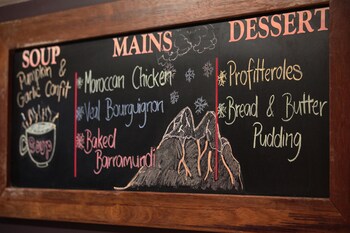 SOUP
Pumpkin &
Garlic Confit
MAINS
Moroccan Chicken
Veal Bourguignon
Baked
Barramundi
DESSERT
Profitteroles
Bread & Butter
Pudding